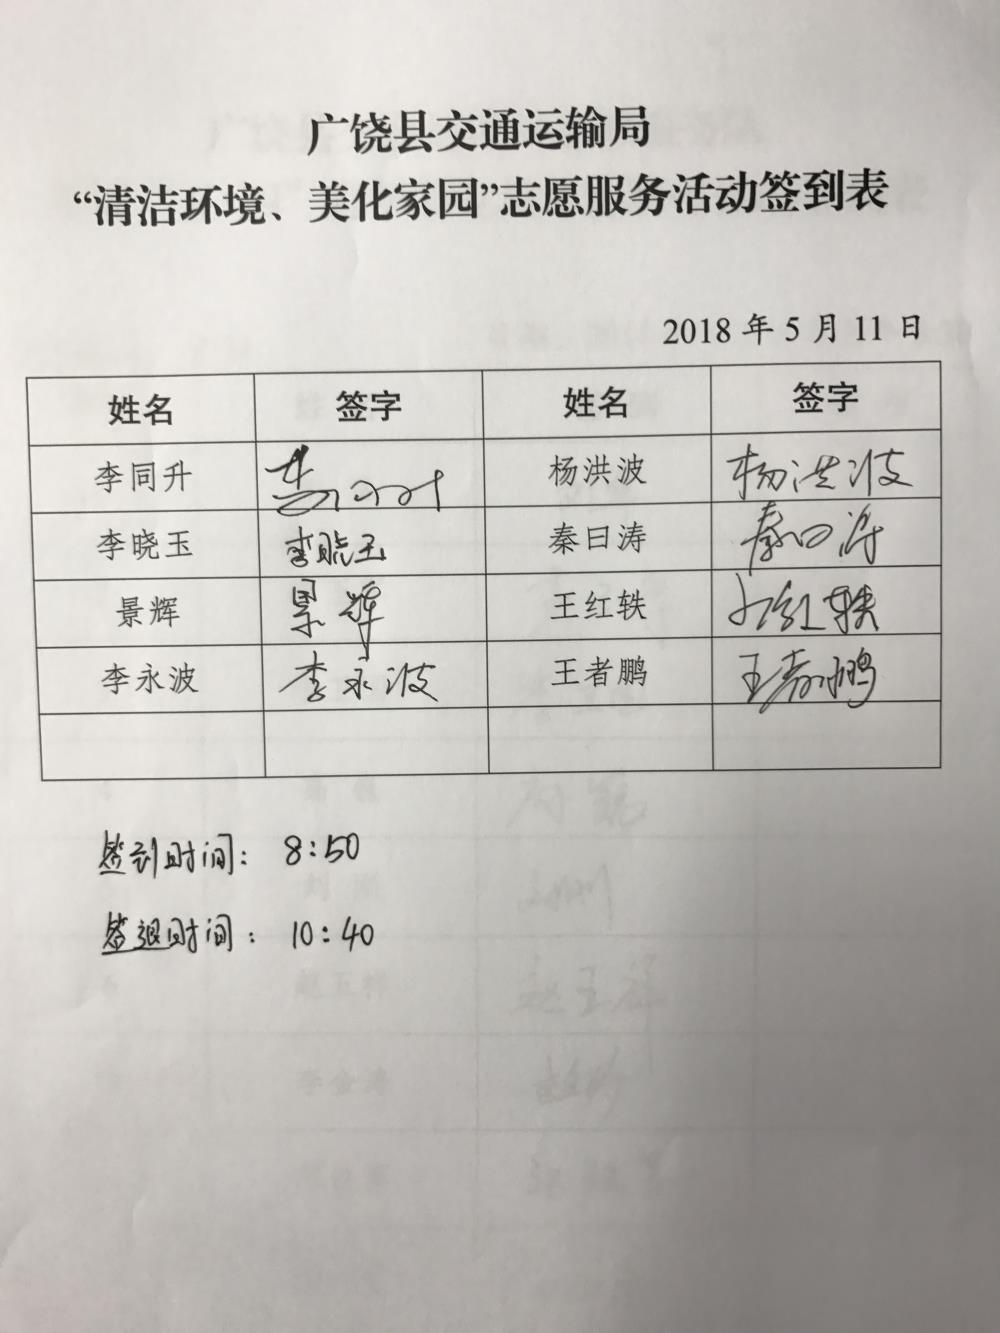 广饶县交通运输局
“清洁环境、美化家园”志愿服务活动签到表
2018 年 5 月 11 日
姓名 签字 姓名 签字
李同升 杨洪波 杨洪波
李晓玉 李晓玉 秦曰涛 秦曰涛
景辉 景辉 王红轶 王红轶
李永波 李永波 王者鹏 王者鹏
签到时间：8:50
签退时间：10:40